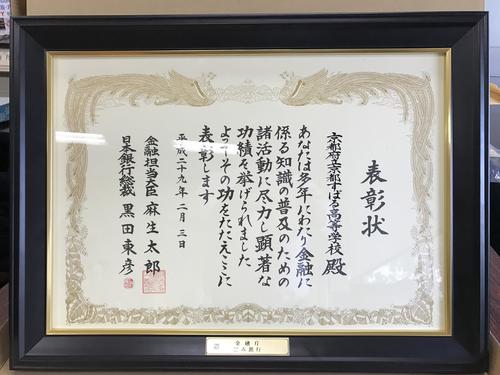 表彰状
京都府立京都すばる高等学校 殿
あなたは多年にわたり金融に
係る知識の普及のための
諸活動に尽力し顕著な
功績を挙げられました
よってその功をたたえここに
表彰します
平成二十九年二月三日
金融担当大臣 麻生太郎
日本銀行総裁 黒田東彦
金融庁
日本銀行